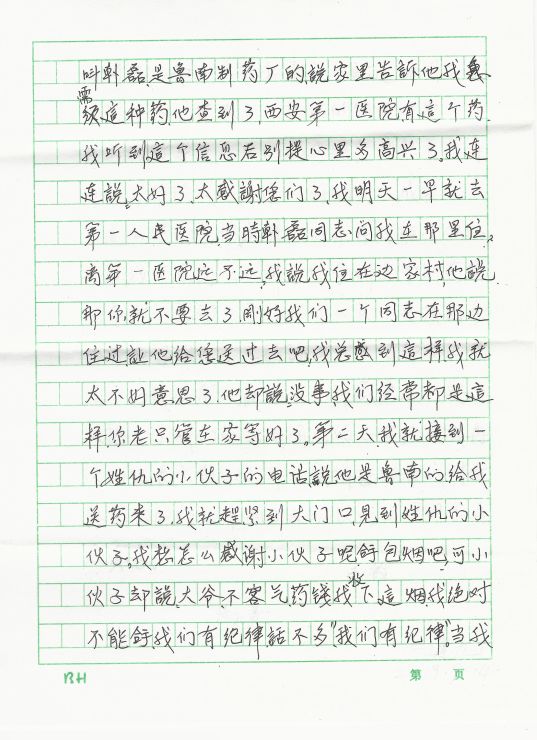 叫韩磊,是鲁南制药厂的,說家里告訴他我急
需
须這种药,他查到了,西安第一医院,有這个药.
我听到這个信息后别提心里多高兴了.我连
连說,太好了,太感謝您们了,我明天一早就去
第一人民医院,当時韩磊同志问我在那里住,
离第一医院远不远,我說我住在边家村,他說
那你就不要去了,刚好我们一个同志,在那边
住过,让他给您送过去吧,我总感到這样,我就
太不好意思了,他却說,没事,我们经常都是這
样,你老只管在家等好了.第二天,我就接到一
个姓仇的小伙子的电话,說他是鲁南的给我
送药来了,我就趕紧到大门口,見到姓仇的小
伙子,我教怎么感谢小伙子呢,給包烟吧,可小
收
伙子却說,大爷,不客气,药钱我下,這烟,我绝对
不能拿,我们有纪律,話不多"我们有纪律",当我
BH
第 页